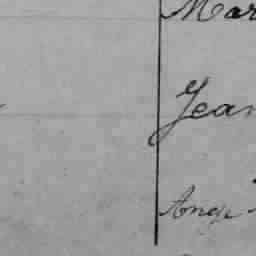 Mar
Jean
Ang